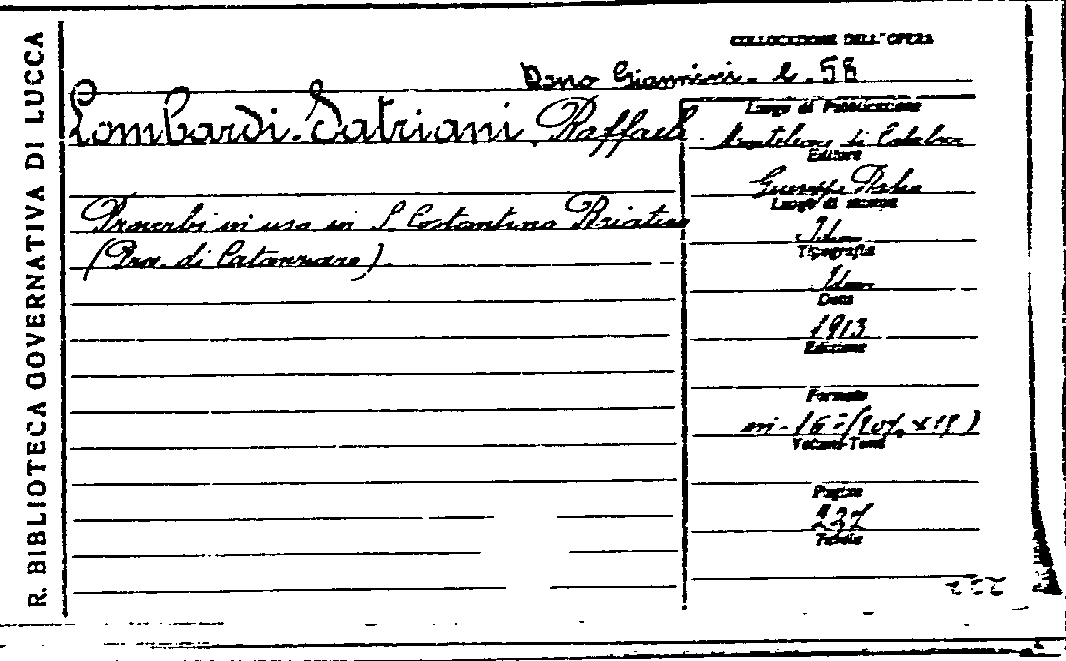 R. BIBLIOTECA GOVERNATIVA DI LUCCA
COLLOCAZIONE DELL'OPERA
Dono Giannini - 2. 58
Lombardi-Satriani, Raffaele
Luogo di Pubblicazione
Monteleone di Calabria
Editore
Giuseppe
Luogo di stampa
Proverbi in uso in S. Costantino Briatico
(Prov. di Catanzaro)
Idem
Tipografia
Idem
Data
1913
Edizione
Formato
in-16°
Volumi-Tomi
Pagine
237
Tavole